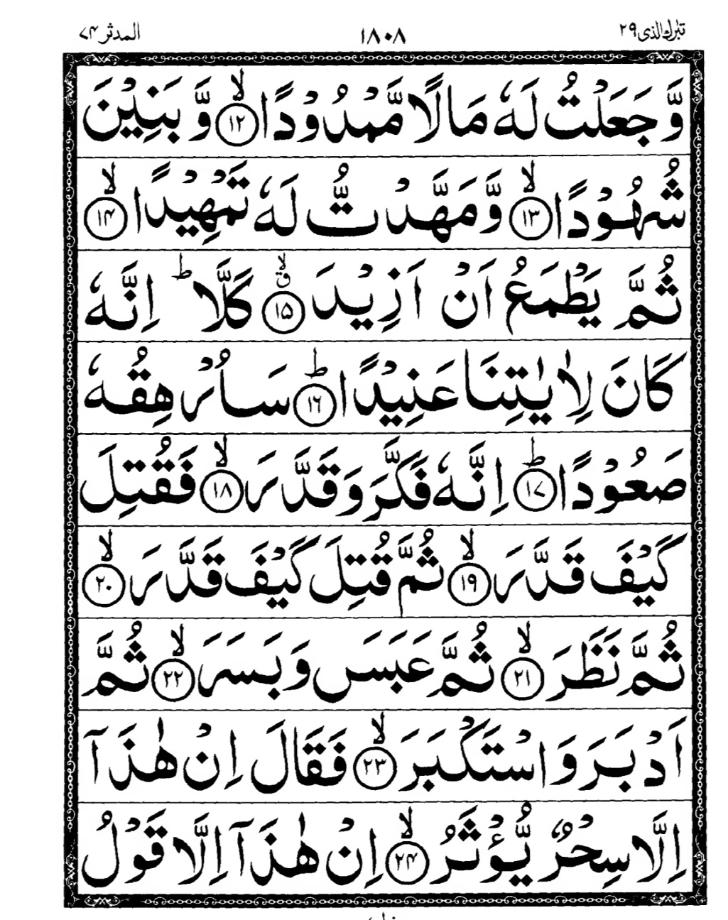 تبٰرك الذی ۲۹ ۱۸۰۸ المدثر ۷۴
وَّجَعَلْتُ لَهٗ مَالًا مَّمْدُوْدًا ۙ﴿۱۲﴾ وَّ بَنِيْنَ
شُهُوْدًا ۙ﴿۱۳﴾ وَّمَهَّدْتُّ لَهٗ تَمْهِيْدًا ۙ﴿۱۴﴾
ثُمَّ يَطْمَعُ اَنْ اَزِيْدَ ۙق﴿۱۵﴾ كَلَّا ؕ اِنَّهٗ
كَانَ لِاٰيٰتِنَا عَنِيْدًا ؕ﴿۱۶﴾ سَاُرْهِقُهٗ
صَعُوْدًا ؕ﴿۱۷﴾ اِنَّهٗ فَكَّرَ وَقَدَّرَ ۙ﴿۱۸﴾ فَقُتِلَ
كَيْفَ قَدَّرَ ۙ﴿۱۹﴾ ثُمَّ قُتِلَ كَيْفَ قَدَّرَ ۙ﴿۲۰﴾
ثُمَّ نَظَرَ ۙ﴿۲۱﴾ ثُمَّ عَبَسَ وَ بَسَرَ ۙ﴿۲۲﴾ ثُمَّ
اَدْبَرَ وَ اسْتَكْبَرَ ۙ﴿۲۳﴾ فَقَالَ اِنْ هٰذَاۤ
اِلَّا سِحْرٌ يُّؤْثَرُ ۙ﴿۲۴﴾ اِنْ هٰذَاۤ اِلَّا قَوْلُ